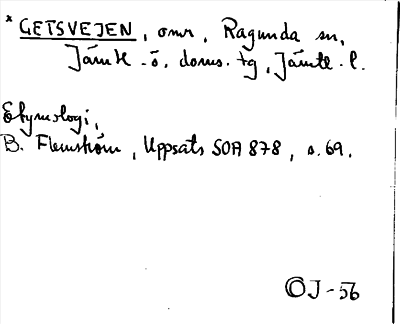 * GETSVEJEN, omr, Ragunda sn,
Jämtl.-ö. doms. tg, Jämtl. l.
Etymologi,
B. Flemström, Uppsats SOA 878, s. 69.
OJ-56